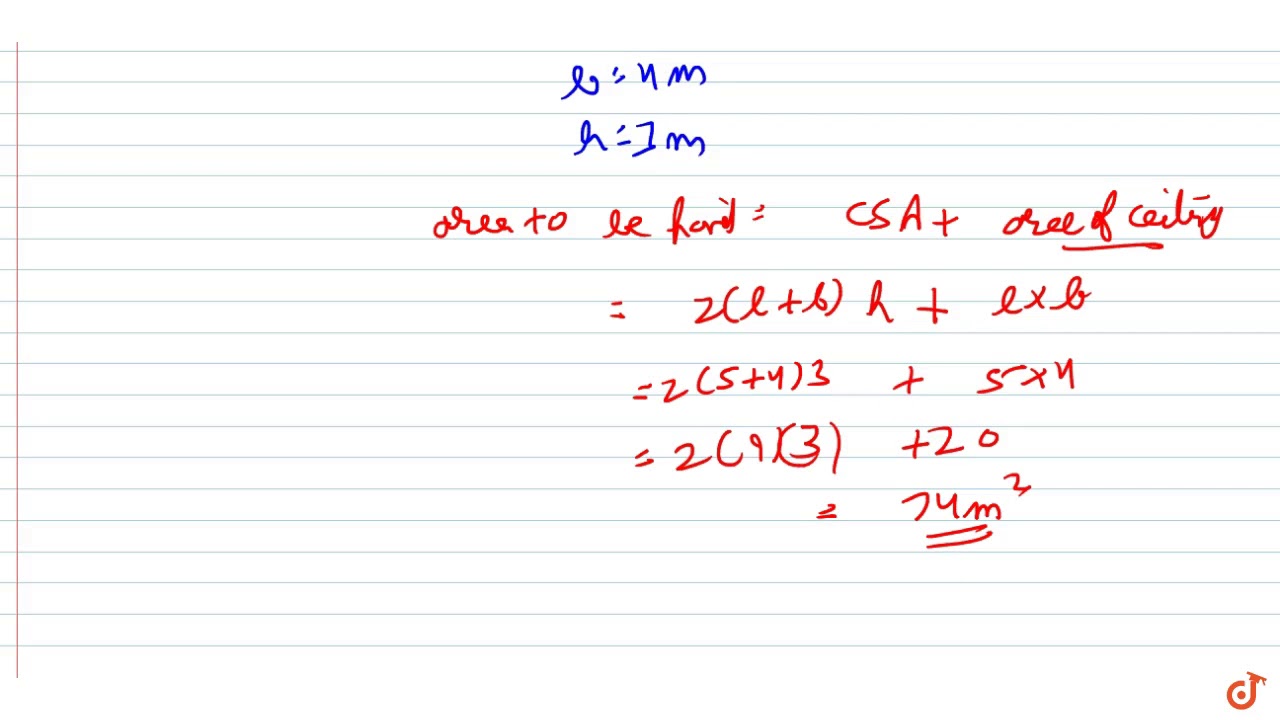 b = 4 m
h = 3 m
area to be = CSA + area of ceiling
= 2(l+b) h + l×b
= 2(5+4)3 + 5×4
= 2(9)(3) +20
= 74m²